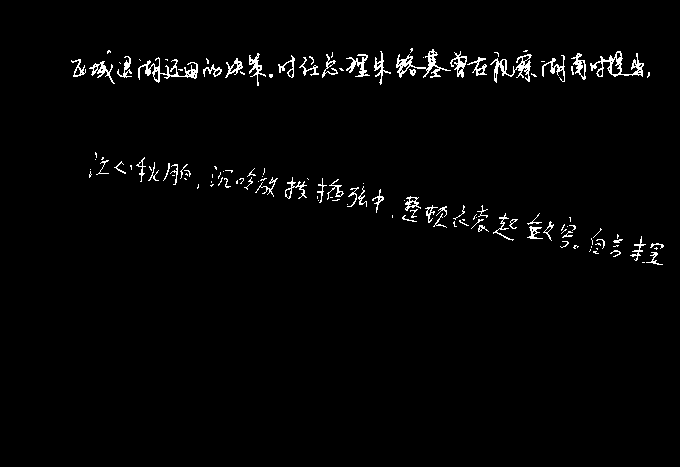 区域退湖还田的决策。时任总理朱镕基曾在视察湖南时提出，
江心秋月白，沉吟放拨插弦中，整顿衣裳起敛容。自言本是